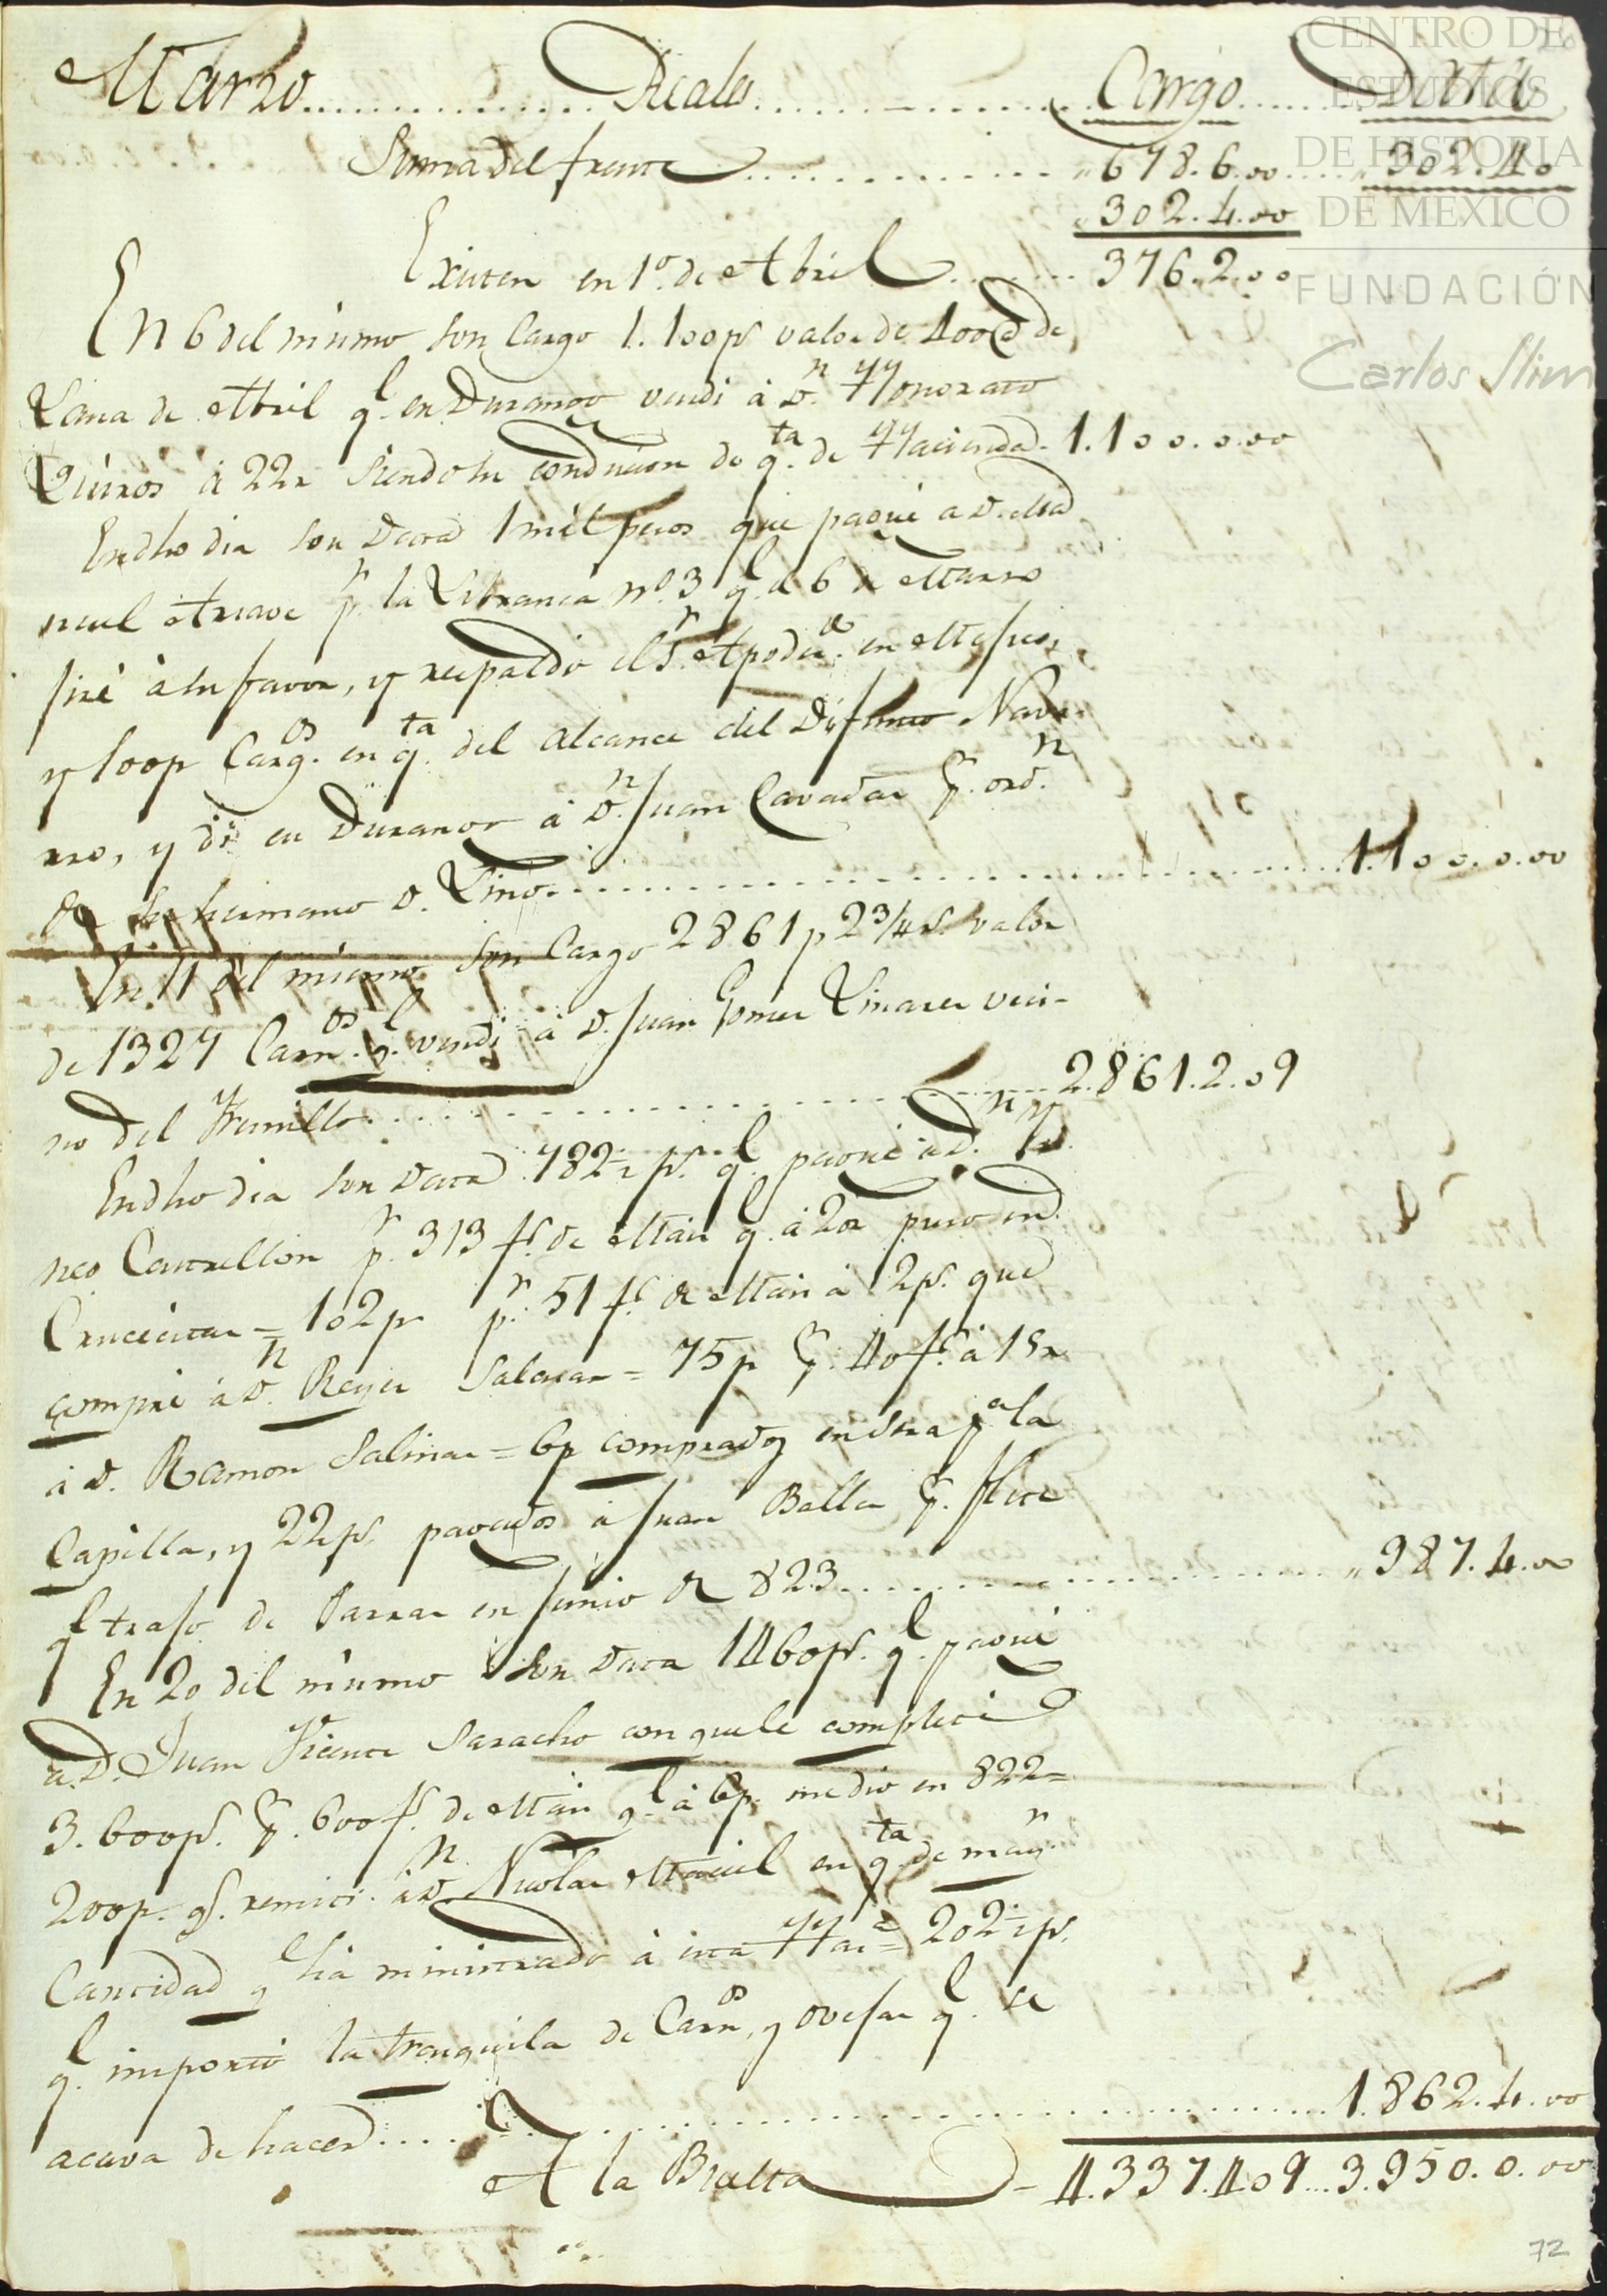 Marzo Reales Cargo Data
Suma del frente 678.6.00 302.4.0
302.4.00
Existen en 1º de Abril 376.2.00
En 6 del mismo son Cargo 1.100ps valor de 400@ de
Lana de Abril ql en Durango vendi á Dn Honorato
Quiros á 22r siendo la conducion de qta de Hacienda 1.100.0.00
En dho dia son Data 1 mil pesos que pagué a D. Ma
nuel pr la Libranza nº 3 ql á 6 de Marzo
jiré á su favor, y respaldó el Sr Apodo en
y 100p Cargos en qta del alcance del Difunto Nava
rro, y dí en Durango á Dn Juan Cavadas pr ordn
de su hermano D. Lino 1.100.0.00
En 11 del mismo son Cargo 2861p 2¾ rs valor
de 1327 Carnos ql vendi á D. Juan Gomez Linares veci-
no del Fresnillo 2.861.2.09
En dho dia son Data 782½ ps ql pagué á Dn
neo Castrellon pr 313 fs de Mais ql á 20r puso en
Crucecitas = 102p pr 51 fs de Mais á 2ps que
compré á Dn Reyes Salazar = 75p pr 40 fs á 15r
á D. Ramon Salinas = 6p comprados en pa la
Capilla, y 22ps pagados á Juan Balla pr flete
ql trajo de Parras en Junio de 823 987.4.00
En 20 del mismo son Data 1460ps ql pagué
a D. Juan Vicente Saracho con que le completé
3.600ps pr 600 fs de Mais ql á 6p. me dio en 822=
200p. qs remití á Dn Nicolas Maciel en qta de mayr
Cantidad ql ha ministrado á esta Haca = 202½ ps
ql importó la trasquila de Carnos y ovejas ql se
acava de hacer 1.862.4.00
A la Buelta 4.337.4.09 3.950.0.00
72
CENTRO DE
ESTUDIOS
DE HISTORIA
DE MEXICO
FUNDACIÓN
Carlos Slim